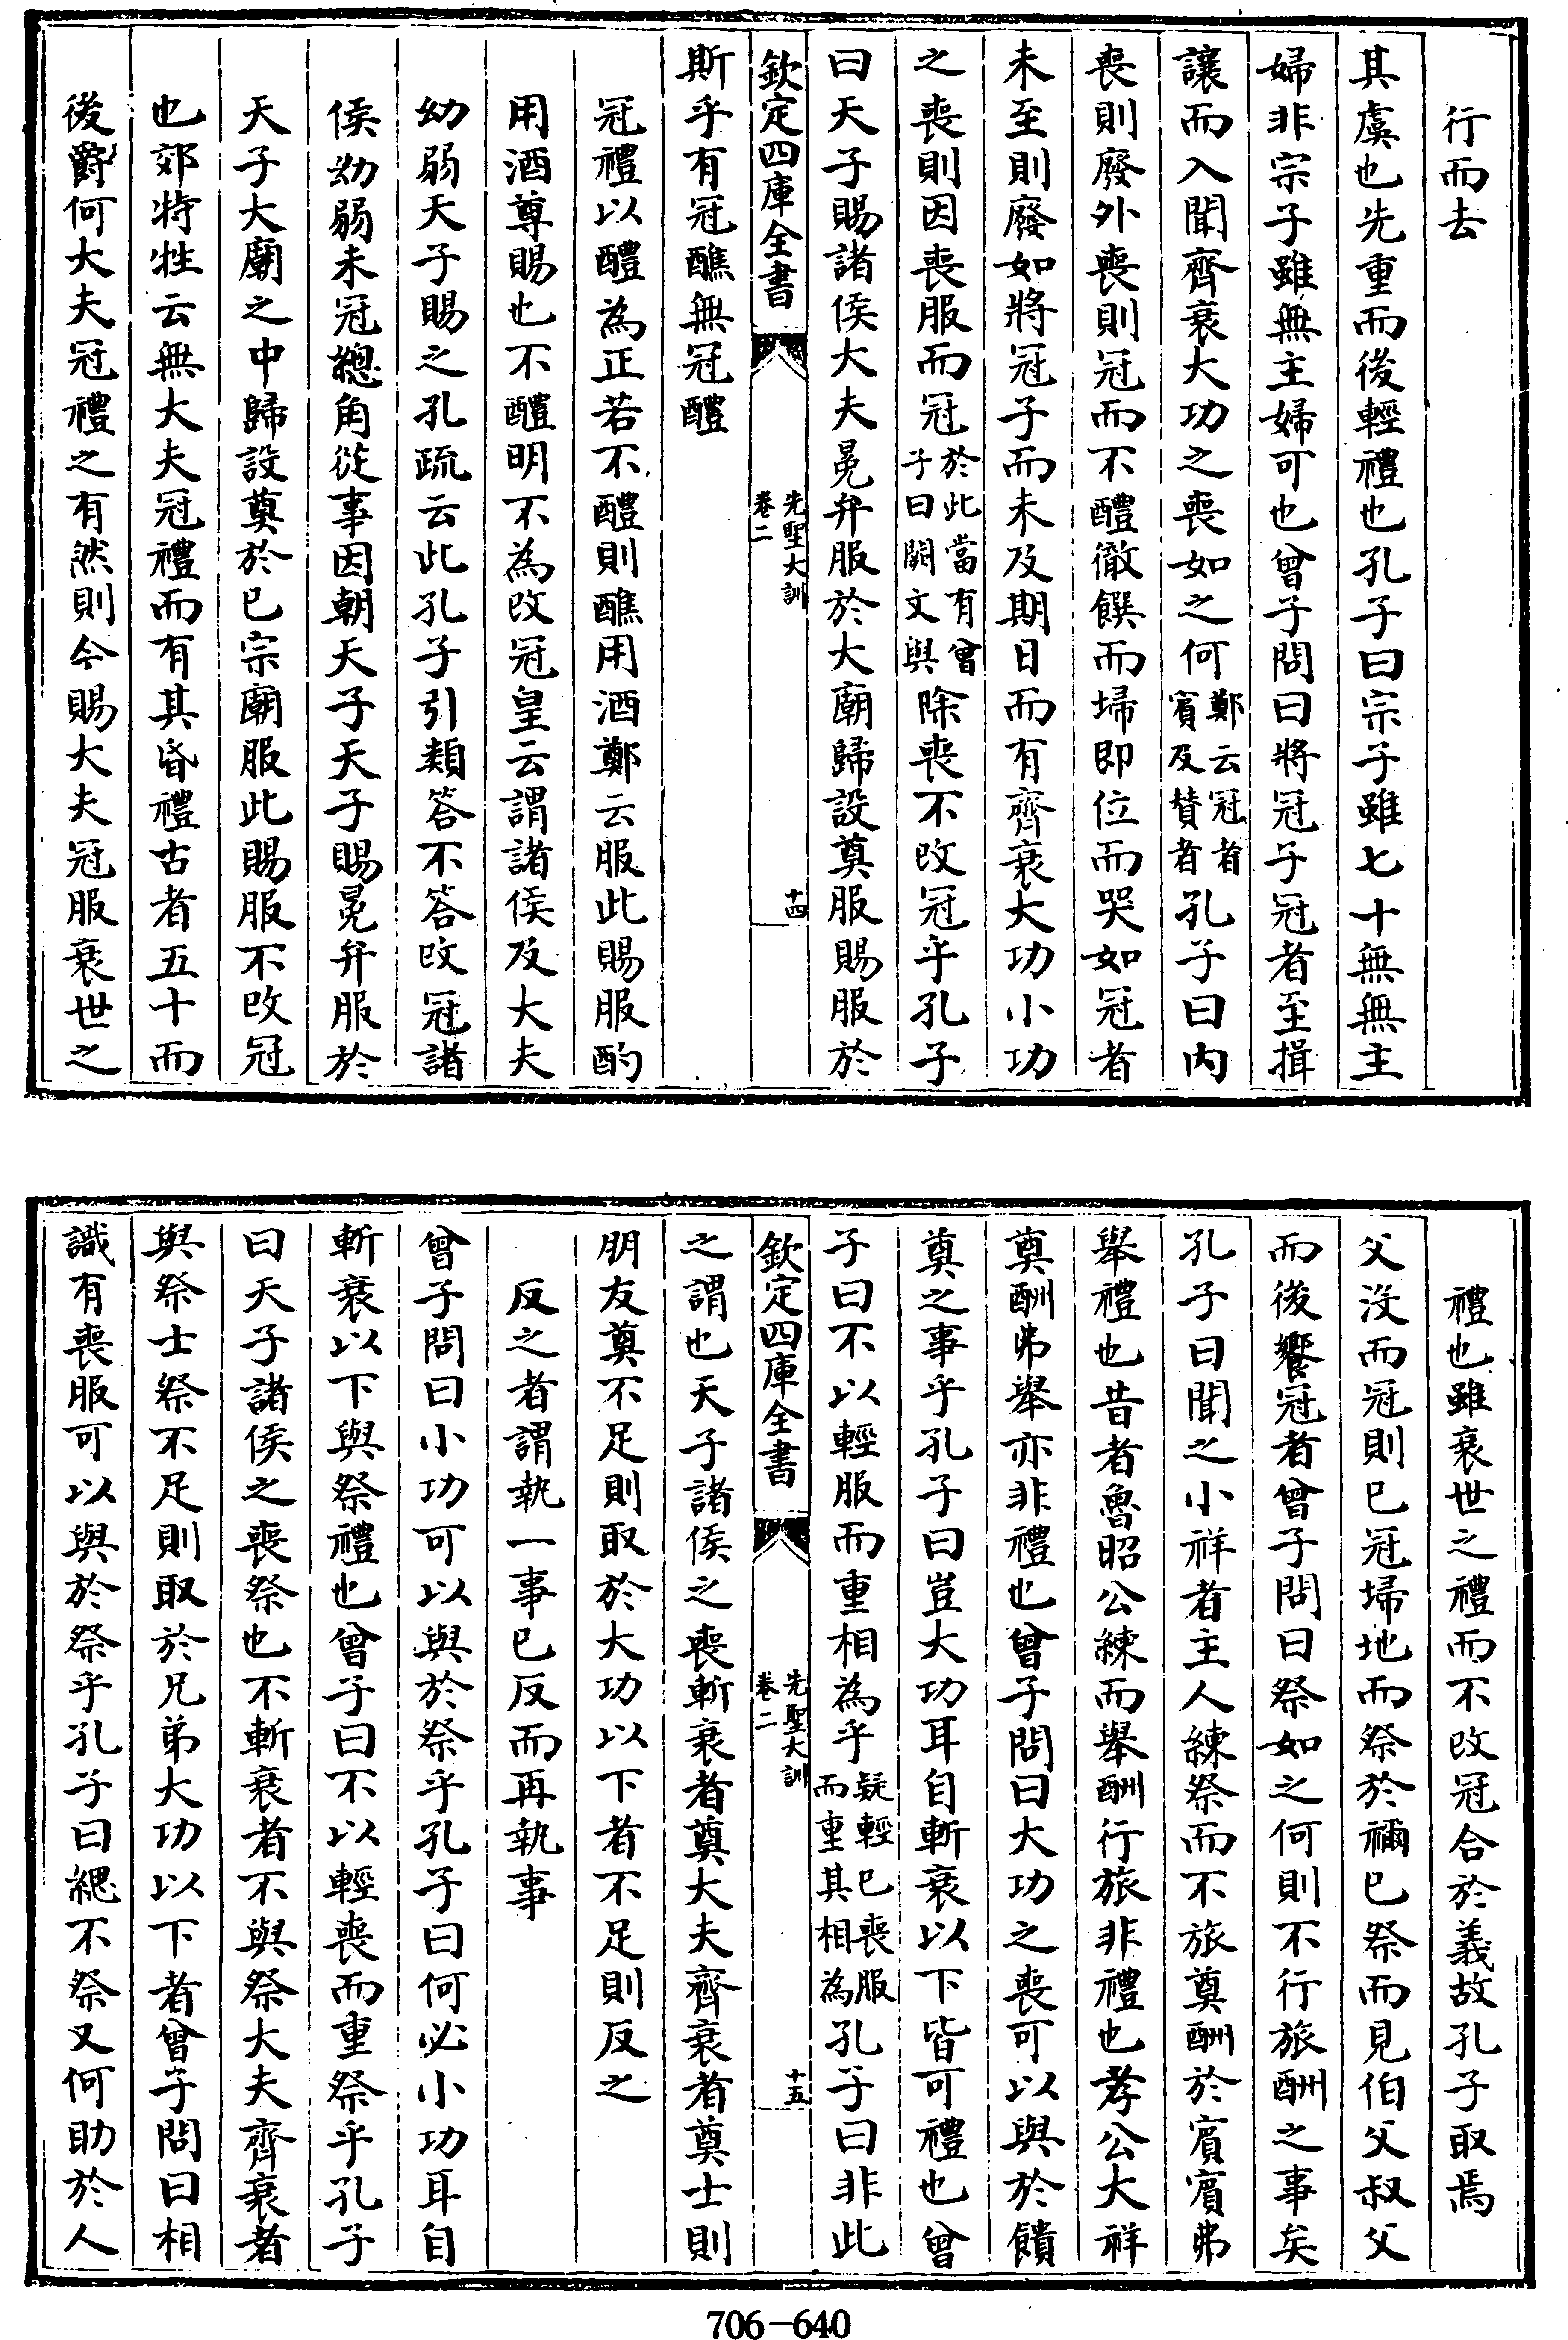 行而去
其虞也先重而後輕禮也孔子曰宗子雖七十無無主
婦非宗子雖無主婦可也曾子問曰將冠子冠者至揖
讓而入聞齊衰大功之喪如之何鄭云冠者賓及賛者孔子曰内
喪則廢外喪則冠而不醴徹饌而埽即位而哭如冠者
未至則廢如將冠子而未及期日而有齊衰大功小功
之喪則因喪服而冠於此當有曾子曰闕文與除喪不改冠乎孔子
曰天子賜諸侯大夫冕弁服於大廟歸設奠服賜服於
欽定四庫全書
先聖大訓
卷二
十四
斯乎有冠醮無冠醴
冠禮以醴為正若不醴則醮用酒鄭云服此賜服酌
用酒尊賜也不醴明不為改冠皇云謂諸侯及大夫
幼弱天子賜之孔疏云此孔子引類答不答改冠諸
侯幼弱未冠總角從事因朝天子天子賜冕弁服於
天子大廟之中歸設奠於已宗廟服此賜服不改冠
也郊特牲云無大夫冠禮而有其昏禮古者五十而
後爵何大夫冠禮之有然則今賜大夫冠服衰世之
禮也雖衰世之禮而不改冠合於義故孔子取焉
父没而冠則已冠埽地而祭於禰已祭而見伯父叔父
而後饗冠者曾子問曰祭如之何則不行旅酬之事矣
孔子曰聞之小祥者主人練祭而不旅奠酬於賓賓弗
舉禮也昔者魯昭公練而舉酬行旅非禮也孝公大祥
奠酬弗舉亦非禮也曾子問曰大功之喪可以與於饋
奠之事乎孔子曰豈大功耳自斬衰以下皆可禮也曾
子曰不以輕服而重相為乎疑輕已喪服而重其相為孔子曰非此
欽定四庫全書
先聖大訓
卷二
十五
之謂也天子諸侯之喪斬衰者奠大夫齊衰者奠士則
朋友奠不足則取於大功以下者不足則反之
反之者謂執一事已反而再執事
曾子問曰小功可以與於祭乎孔子曰何必小功耳自
斬衰以下與祭禮也曾子曰不以輕喪而重祭乎孔子
曰天子諸侯之喪祭也不斬衰者不與祭大夫齊衰者
與祭士祭不足則取於兄弟大功以下者曾子問曰相
識有喪服可以與於祭乎孔子曰緦不祭又何助於人
706-640